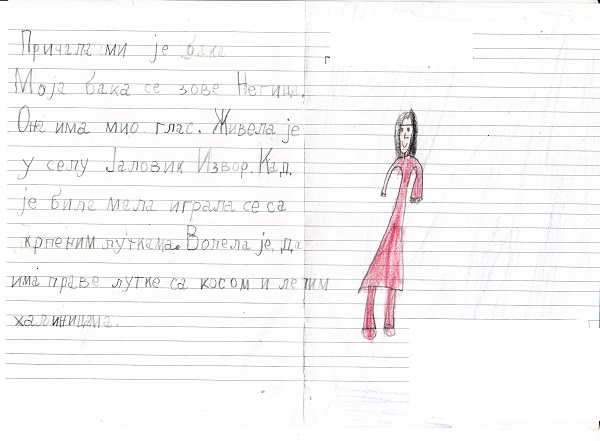 Причала ми је бака
Моја бака се зове Негица.
Она има мио глас. Живела је
у селу Јаловик Извор. Кад
је била мала играла се са
крпеним луткама. Волела је да
има праве лутке са косом и лепим
халиницама.